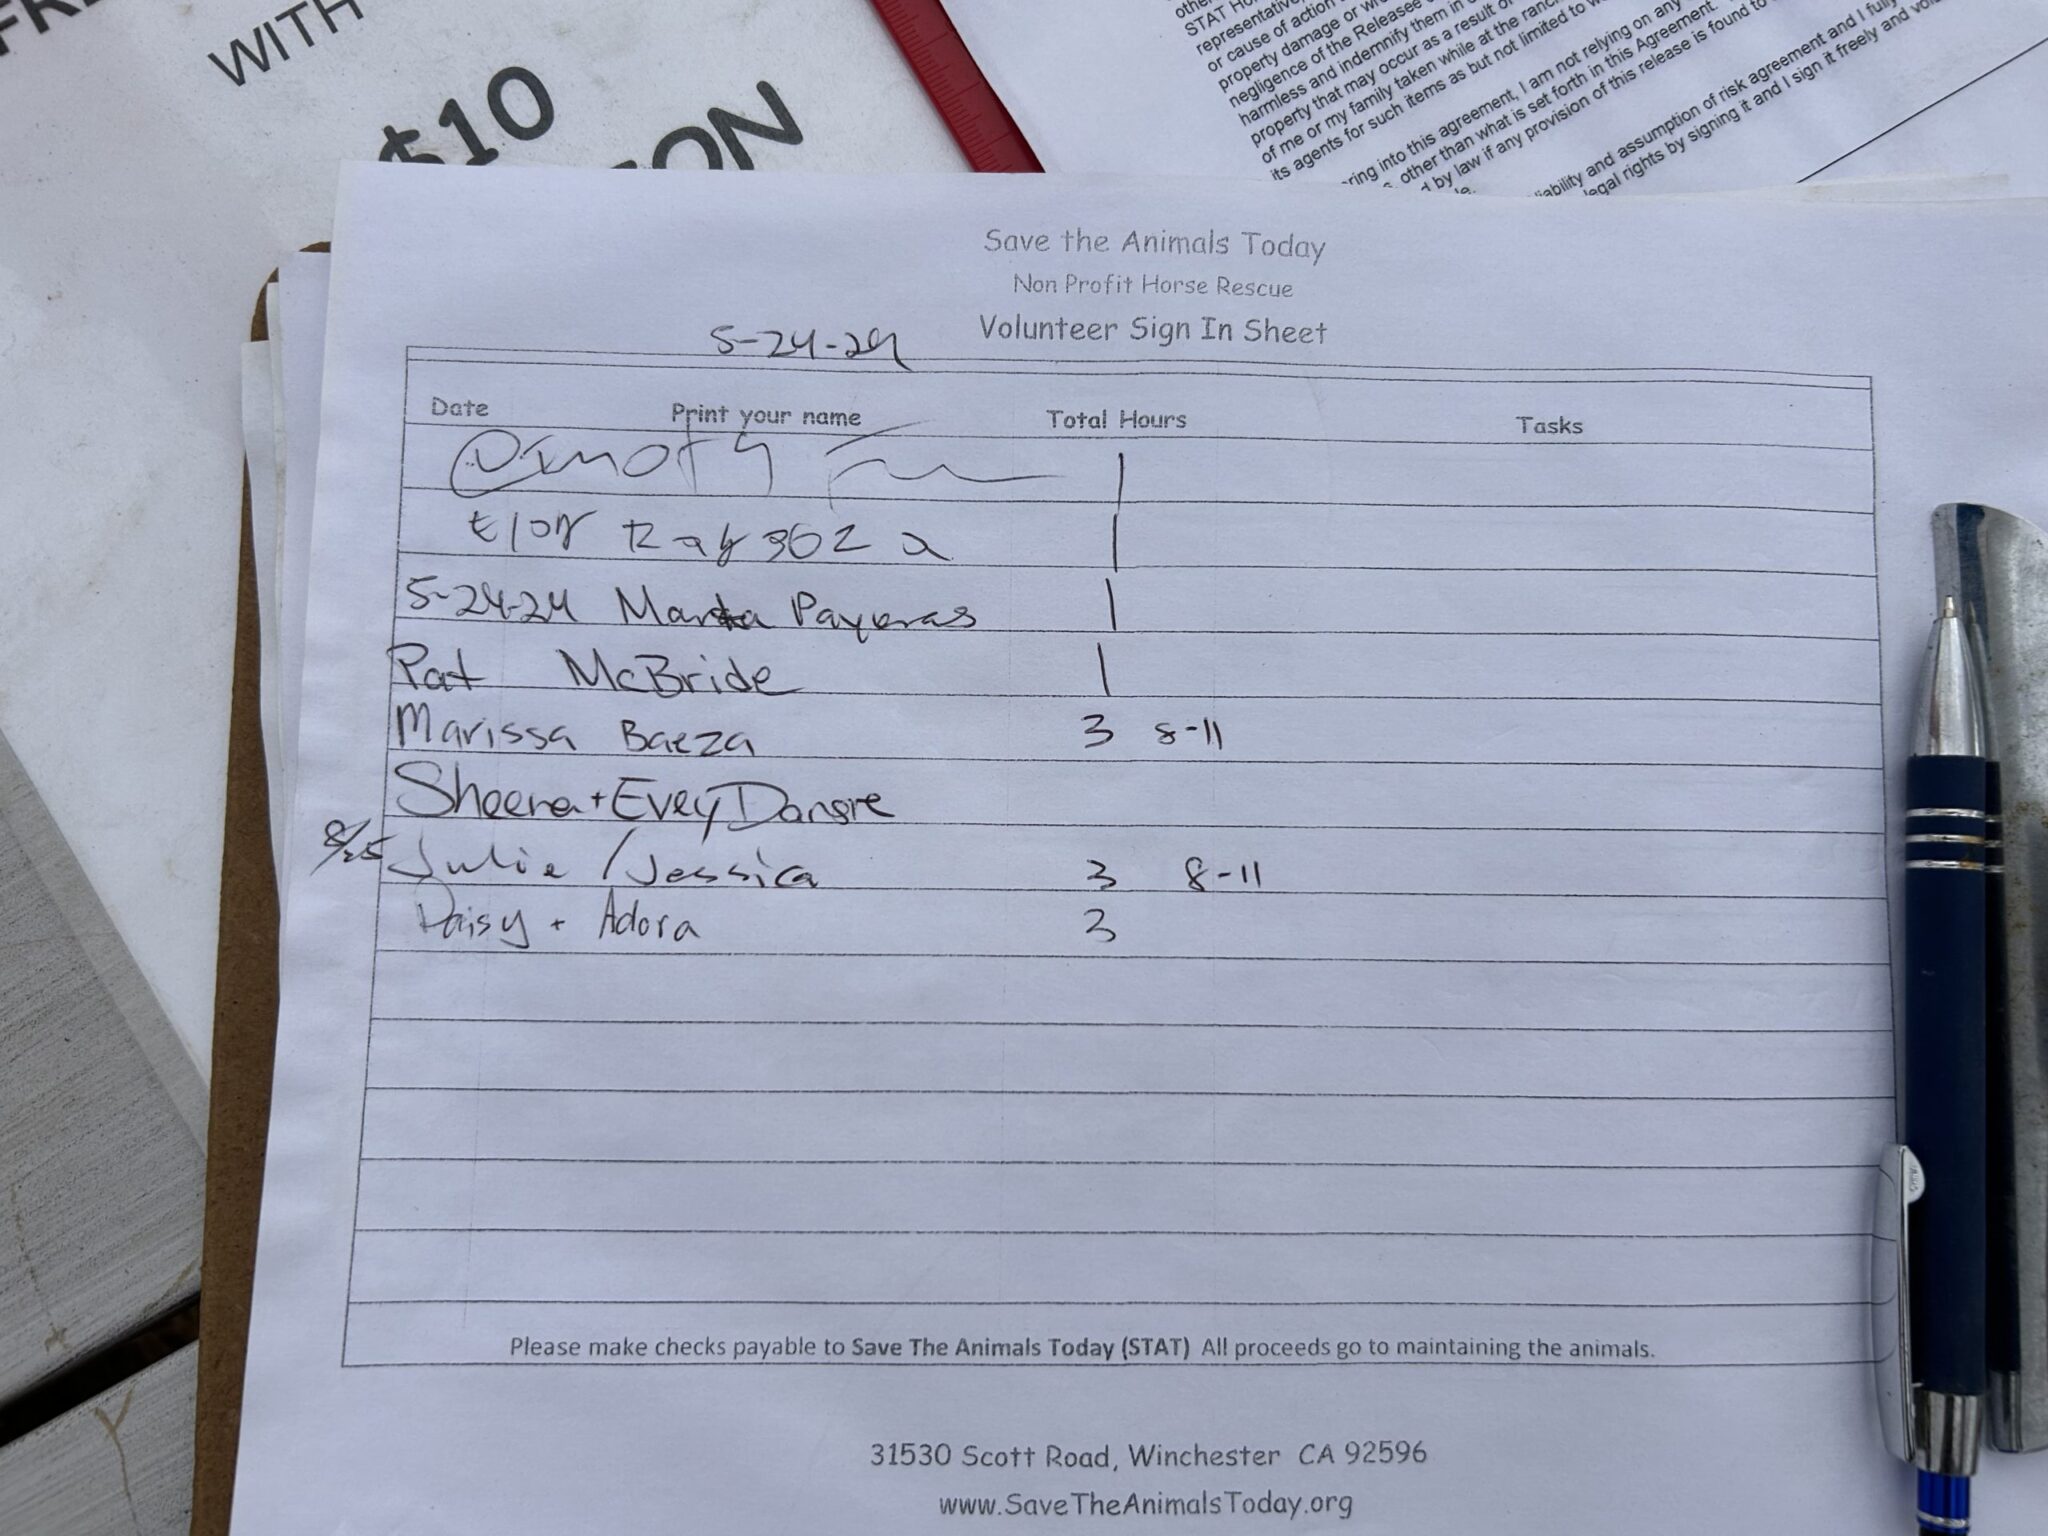 WITH
$10
STAT
representative
or cause of action
property damage or
negligence of the Releasee
harmless and indemnify them in
property that may occur as a result of
of me or my family taken while at the ranch
its agents for such items as but not limited to
into this agreement, I am not relying on any
other than what is set forth in this Agreement.
by law if any provision of this release is found to
and assumption of risk agreement and I fully
legal rights by signing it and I sign it freely and
Save the Animals Today
Non Profit Horse Rescue
Volunteer Sign In Sheet
5-24-24
Date Print your name Total Hours Tasks
1
1
5-24-24 Marta Payeras 1
Pat McBride 1
Marissa Baeza 3 8-11
Sheena + Evey
Julie / Jessica 3 8-11
Daisy + Adora 3
Please make checks payable to Save The Animals Today (STAT) All proceeds go to maintaining the animals.
31530 Scott Road, Winchester CA 92596
www.SaveTheAnimalsToday.org